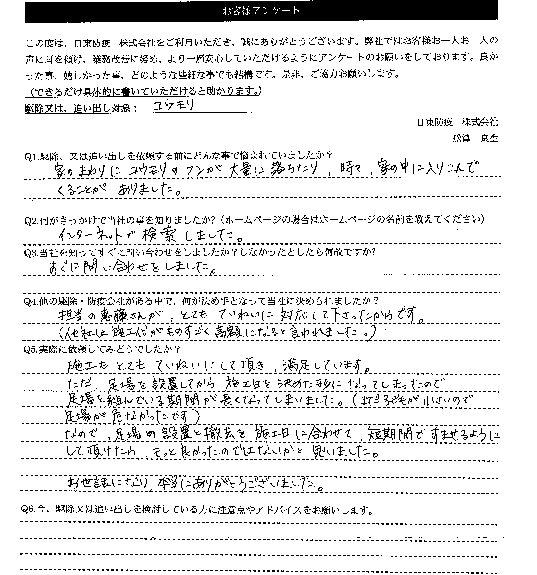 お客様アンケート
この度は、日東防疫 株式会社をご利用いただき、誠にありがとうございます。弊社ではお客様お一人お一人の
声に耳を傾け、業務改善に努め、より一層安心していただけるようにアンケートのお願いをしております。良か
った事、嬉しかった事、どのような些細な事でも結構です。是非、ご協力お願いします。
(できるだけ具体的に書いていただけると助かります。)
駆除又は、追い出し対象: コウモリ
日東防疫 株式会社
Q1.駆除、又は追い出しを依頼する前にどんな事で悩まれていましたか?
家のまわりにコウモリのフンが大量に落ちたり、時々、家の中に入りこんで
くることがありました。
Q2.何がきっかけで当社の事を知りましたか?(ホームページの場合はホームページの名前を教えてください)
インターネットで検索しました。
Q3.当社を知ってすぐに問い合わせをしましたか?しなかったとしたら何故ですか?
すぐに問い合わせをしました。
Q4.他の駆除・防疫会社がある中で、何が決め手となって当社に決められましたか?
担当の恵藤さんが、とてもていねいに対応して下さったからです。
(他社は施工代がものすごく高額になると言われました。)
Q5.実際に依頼してみてどうでしたか?
施工もとてもていねいにして頂き、満足しています。
ただ、足場を設置してから施工日を決めた形になってしまったので
足場を組んでいる期間が長くなってしまいました。(まだ子どもが小さいので
足場が危なかったです)
なので、足場の設置と撤去を施工日に合わせて、短期間ですませるように
して頂けたら、もっと良かったのではないかと思いました。
お世話になり、本当にありがとうございました。
Q6.今、駆除又は追い出しを検討している方に注意点やアドバイスをお願いします。